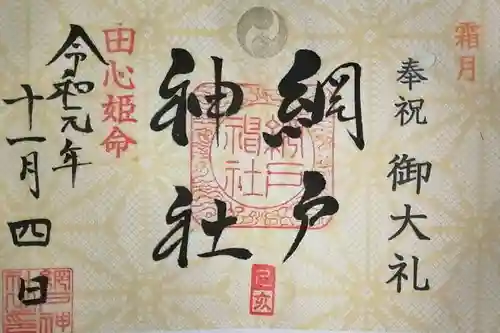 霜月
奉祝 御大礼
網戸
神社
己亥
田心姫命
令和元年
十一月四日